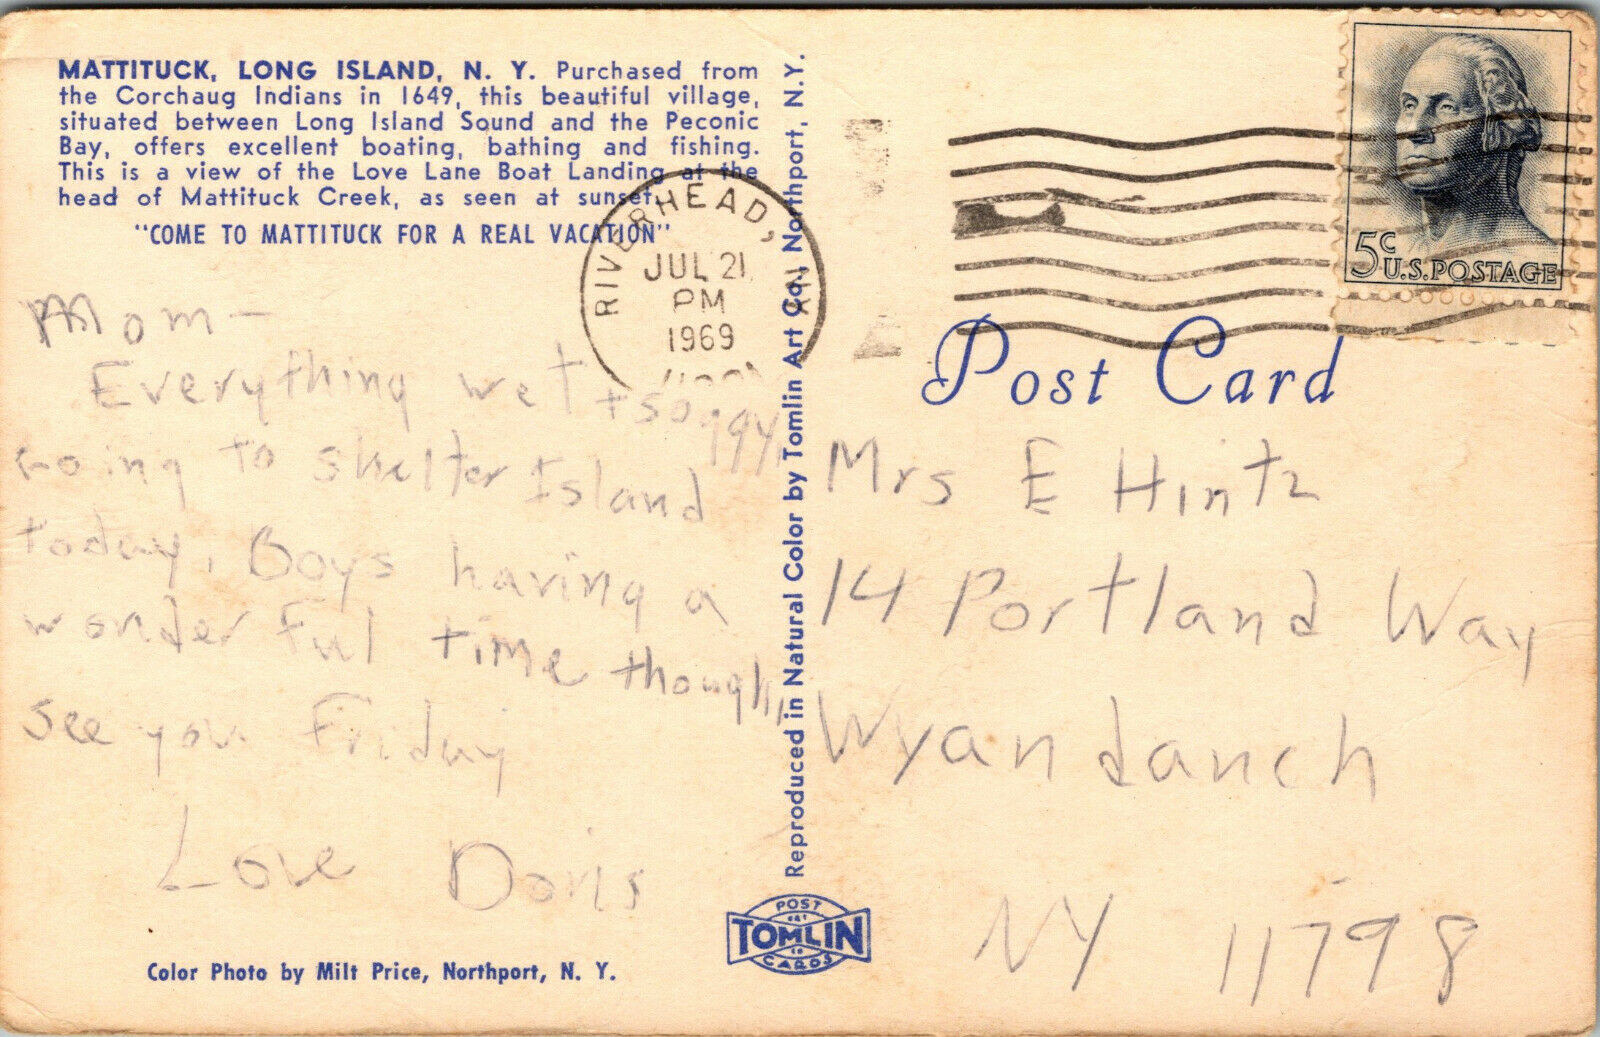 MATTITUCK, LONG ISLAND, N. Y. Purchased from
the Corchaug Indians in 1649, this beautiful village,
situated between Long Island Sound and the Peconic
Bay, offers excellent boating, bathing and fishing.
This is a view of the Love Lane Boat Landing at the
head of Mattituck Creek, as seen at sunset.
"COME TO MATTITUCK FOR A REAL VACATION"
Mom -
Everything wet + soggy,
Going to Shelter Island
today. Boys having a
wonderful time though,
see you Friday
Love Doris
Color Photo by Milt Price, Northport, N. Y.
RIVERHEAD, NY
JUL 21
PM
1969
Reproduced in Natural Color by Tomlin Art Co., Northport, N.Y.
POST
TOMLIN
CARDS
5c
U.S. POSTAGE
Post Card
Mrs E Hintz
14 Portland Way
Wyandanch
NY 11798